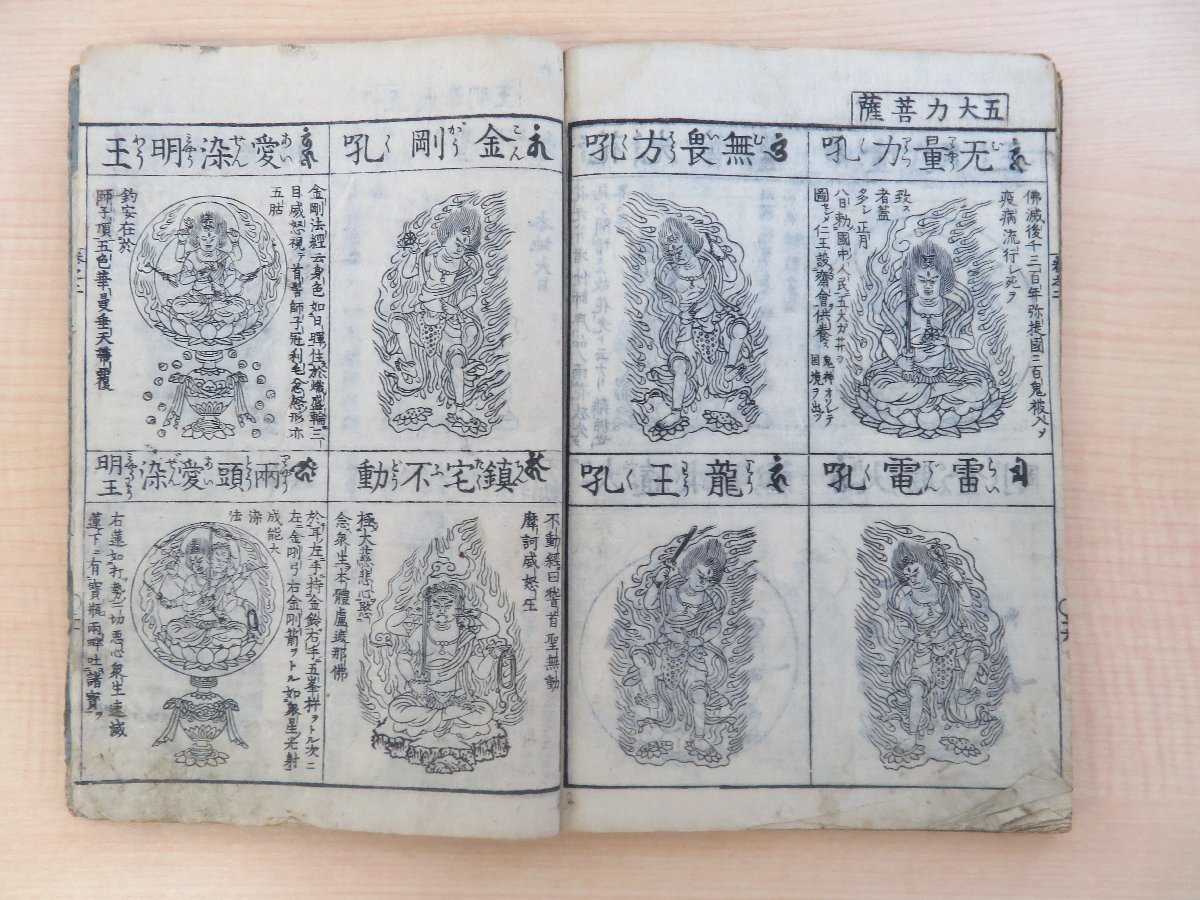 五大力菩薩
无量力吼
佛滅後千三百年弥提國ニ百鬼被入ヲ
疫病流行シ死ヲ
致ス
者蓋
多シ正月
八日勅國中人民
圖セメ仁王設齋會供養
鬼神オソレテ
国境ヲ出ツ
無畏方吼
雷電吼
龍王吼
金剛吼
愛染明王
金剛法經云身色如日暉住於熾盛輪三
目威怒視首髻師子冠利毛忿怒形亦
五股
鈎安在於
師子頂五色華曼垂天帶覆
鎮宅不動
不動經曰稽首聖無動
摩訶威怒王
極大慈悲心愍
念衆生本體盧遮那佛
兩頭愛染明王
於耳左手持金鈴右手五峯杵ヲトル次ニ
左ニ金剛弓右金剛箭ヲトル如衆星光射
成能大
染
法
右蓮如打勢一切惡心衆生速滅
蓮下ニ有寶瓶兩畔吐諸寶ヲ